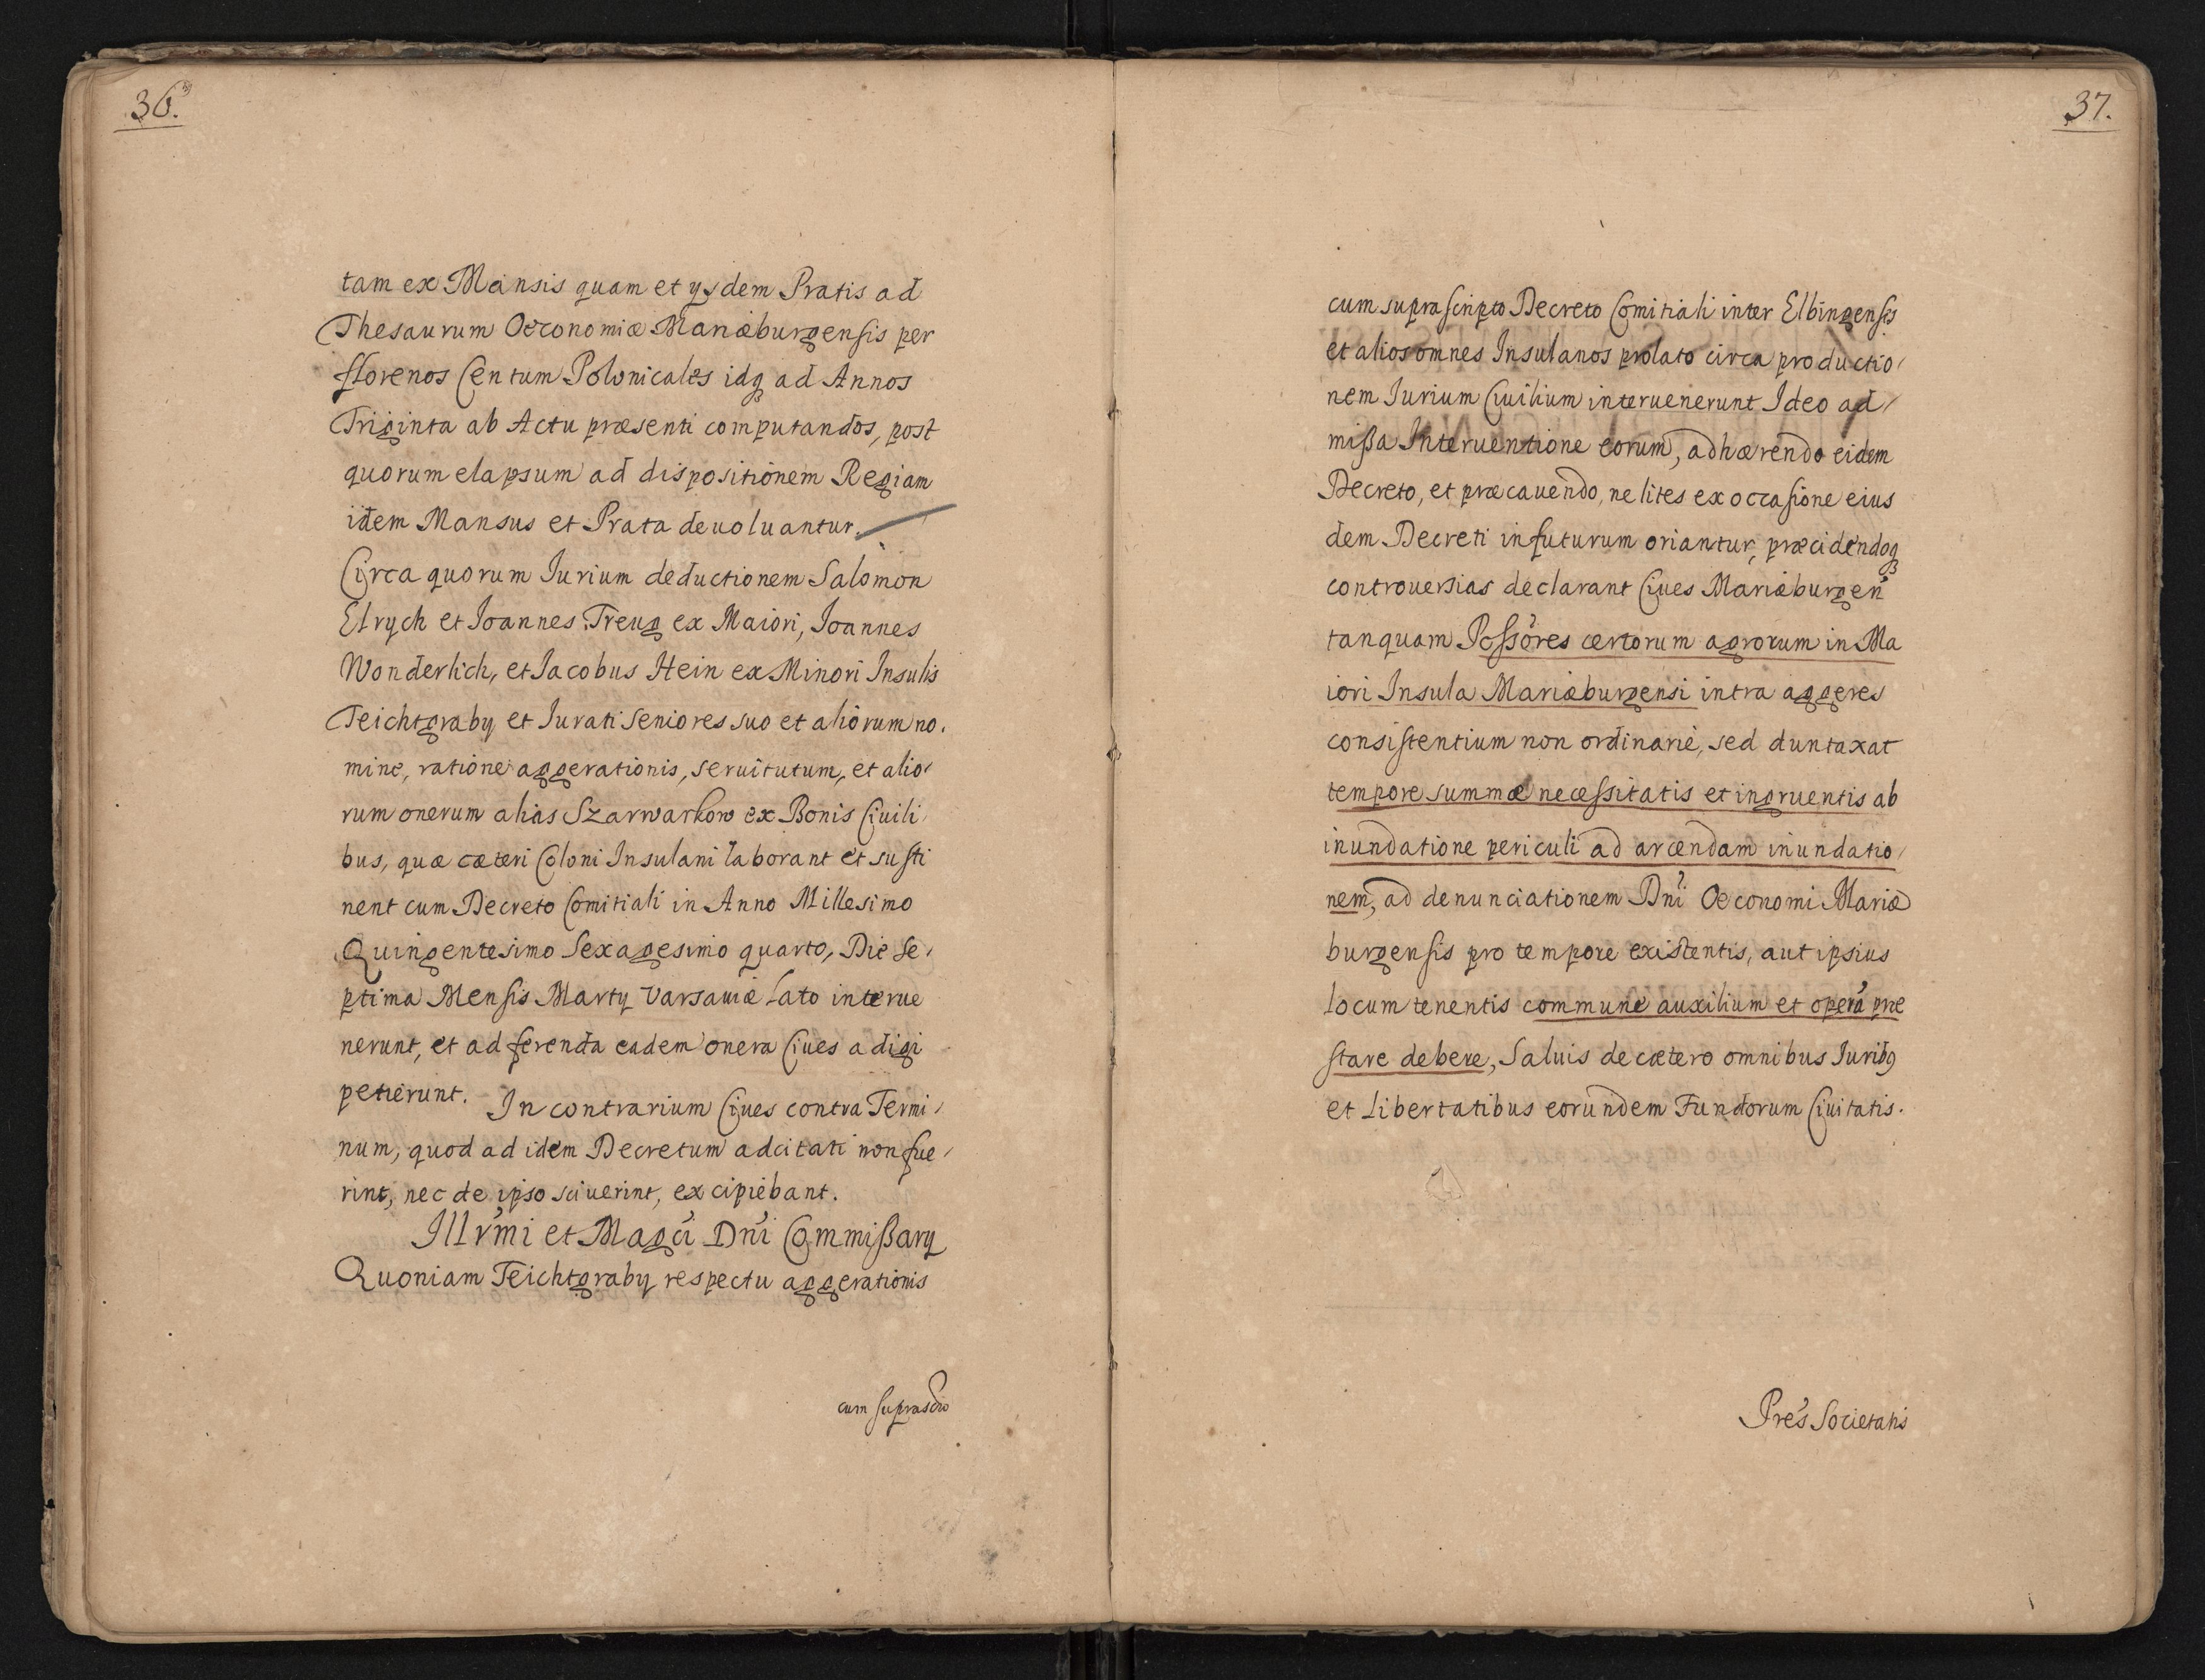 36.
tam ex Mansis quam et ijsdem Pratis ad
Thesaurum Oeconomiæ Mariæburgensis per
florenos Centum Polonicales idq ad Annos
Triginta ab Actu præsenti computandos, post
quorum elapsum ad dispositionem Regiam
idem Mansus et Prata deuoluantur.
Circa quorum Iurium deductionem Salomon
Elrych et Ioannes Treug ex Maiori, Ioannes
Wonderlich, et Iacobus Hein ex Minori Insulis
Teichtgrabij et Iurati Seniores suo et aliorum no.
mine, ratione aggerationis, seruitutum, et alio
rum onerum alias Szarwarkow ex Bonis Ciuili
bus, quæ cæteri Coloni Insulani laborant et susti
nent cum Decreto Comitiali in Anno Millesimo
Quingentesimo Sexagesimo quarto, Die Se,
ptima Mensis Martij Varsauiæ lato interue
nerunt, et ad ferenda eadem onera Ciues adigi
petierunt. In contrarium Ciues contra Termi,
num, quod ad idem Decretum adcitati non fue,
rint, nec de ipso sciuerint, excipiebant.
Illrmi et Magci Dni Commißarij
Quoniam Teichtgrabij respectu aggerationis
cum suprascrio
37.
cum suprascripto Decreto Comitiali inter Elbingenses
et alios omnes Insulanos prolato circa productio,
nem Iurium Ciuilium interuenerunt Ideo ad,
mißa Interuentione eorum, adhærendo eidem
Decreto, et præcauendo, ne lites ex occasione eius
dem Decreti in futurum oriantur, præcidendoq
controuersias declarant Ciues Mariæburgen
tanquam Possores certorum agrorum in Ma
iori Insula Mariæburgensi intra aggeres
consistentium non ordinariè, sed duntaxat
tempore summæ necessitatis et ingruentis ab
inundatione periculi ad arcendam inundatio,
nem, ad denunciationem Dni Oeconomi Mariæ
burgensis pro tempore existentis, aut ipsius
locum tenentis commune auxilium et operã præ
stare debere, Saluis de cætero omnibus Iuribq
et Libertatibus eorundem Fundorum Ciuitatis.
Pres Societatis